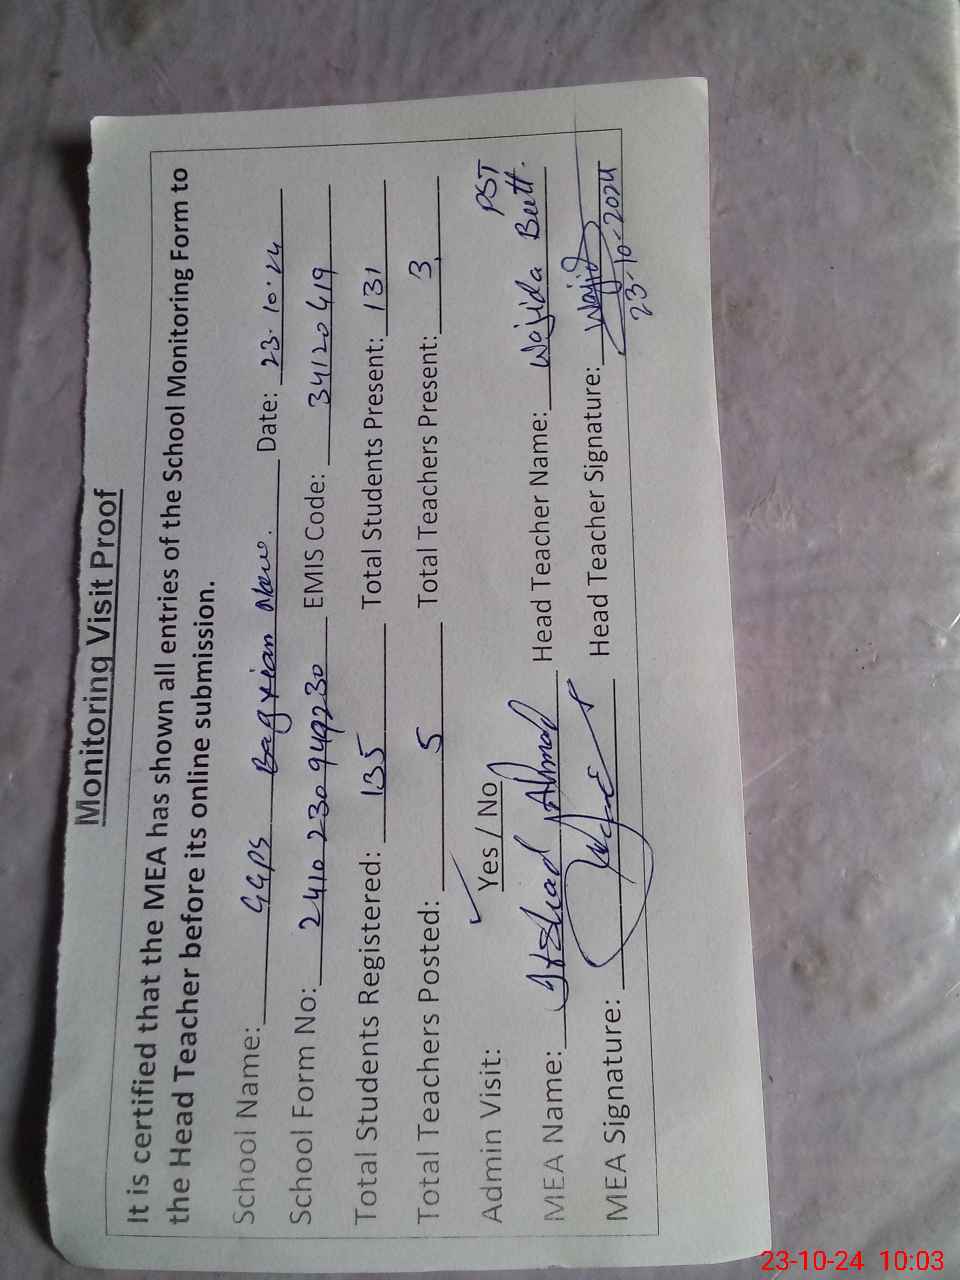 Monitoring Visit Proof
It is certified that the MEA has shown all entries of the School Monitoring Form to
the Head Teacher before its online submission.
School Name: GGPS Bagrian New. Date: 23.10.24
School Form No: 2410230949230 EMIS Code: 34120419
Total Students Registered: 135 Total Students Present: 131
Total Teachers Posted: 5 Total Teachers Present: 3
Admin Visit: ✓ Yes / No PST
MEA Name: Ahmad Head Teacher Name: Wajida Butt.
MEA Signature: Head Teacher Signature: Wajida
23-10-2024
23-10-24 10:03